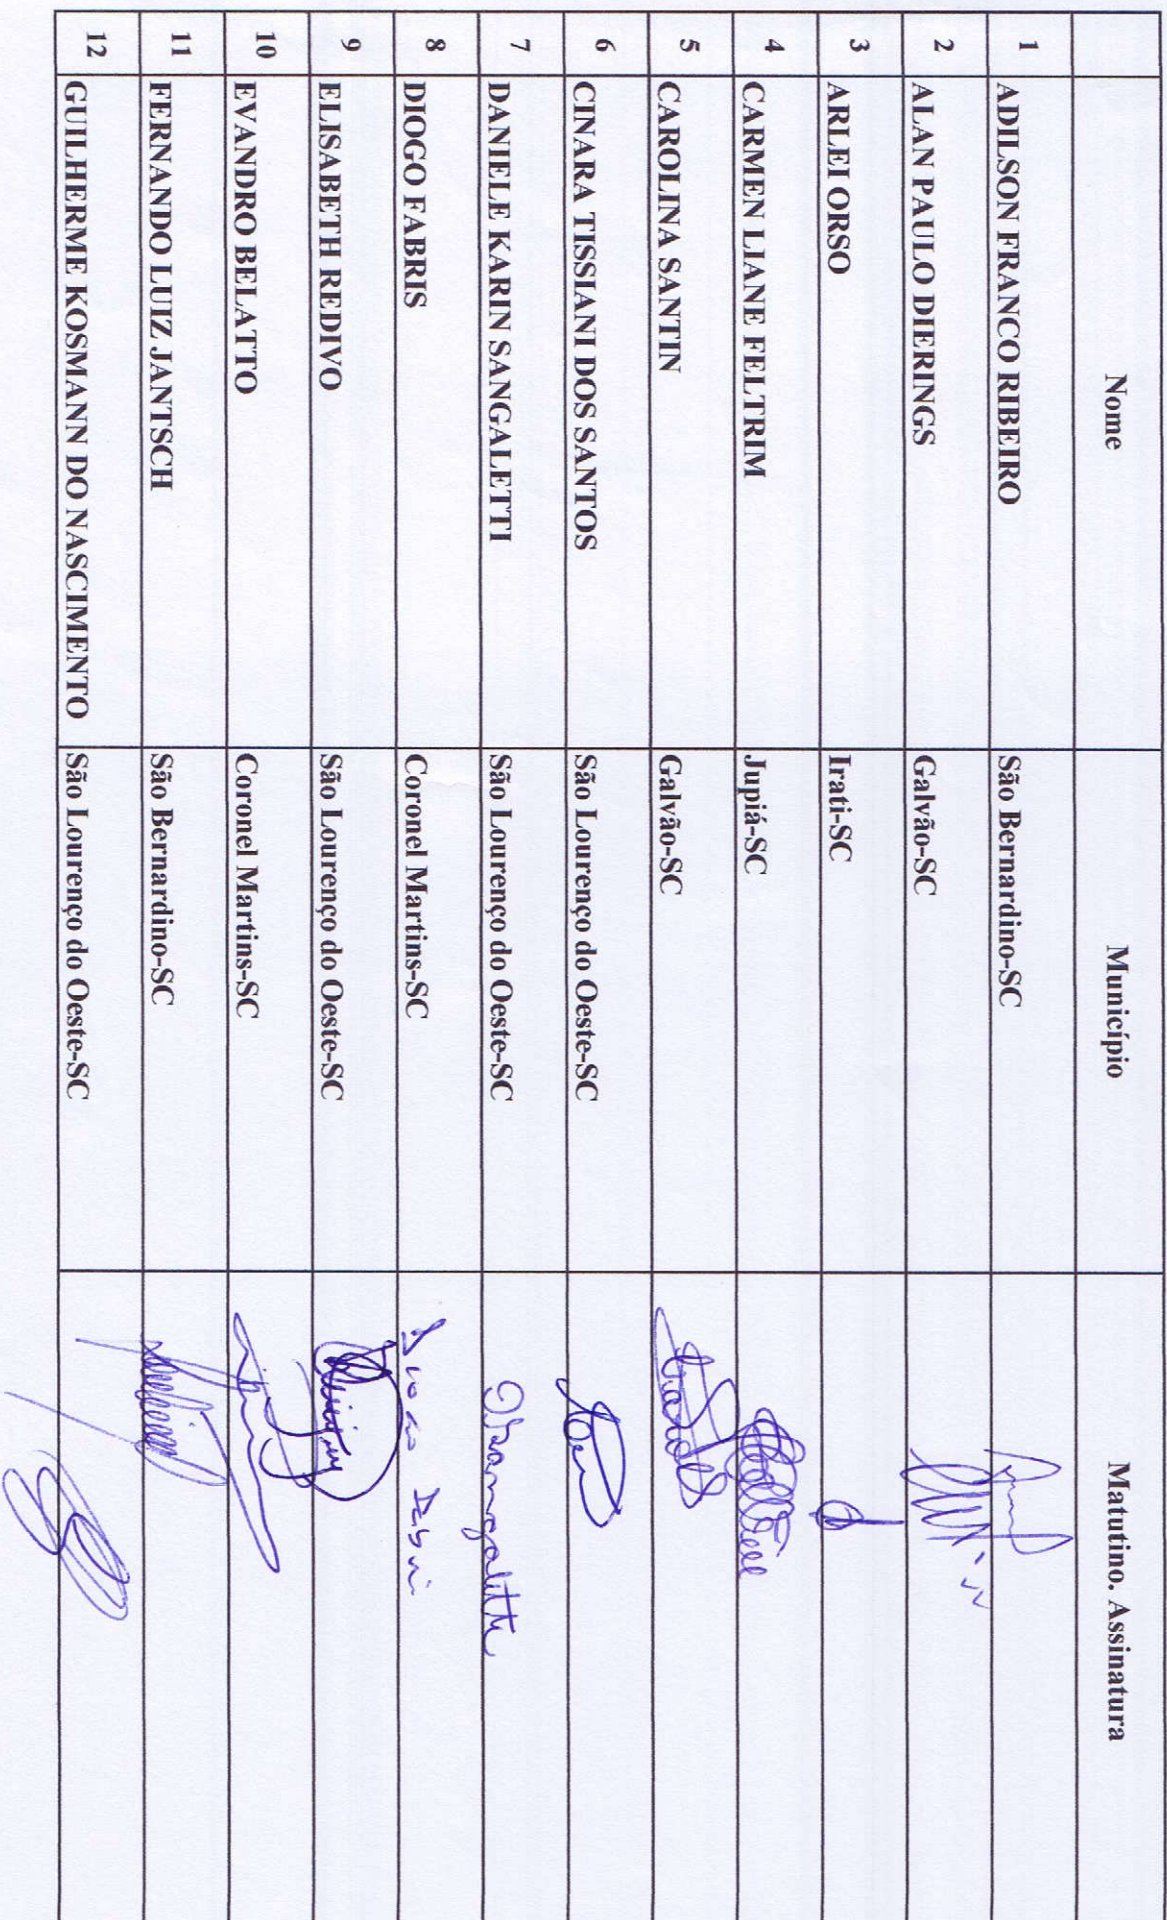 Nome Município Matutino. Assinatura
1 ADILSON FRANCO RIBEIRO São Bernardino-SC
2 ALAN PAULO DIERINGS Galvão-SC
3 ARLEI ORSO Irati-SC
4 CARMEN LIANE FELTRIM Jupiá-SC
5 CAROLINA SANTIN Galvão-SC
6 CINARA TISSIANI DOS SANTOS São Lourenço do Oeste-SC
7 DANIELE KARIN SANGALETTI São Lourenço do Oeste-SC
8 DIOGO FABRIS Coronel Martins-SC
9 ELISABETH REDIVO São Lourenço do Oeste-SC
10 EVANDRO BELATTO Coronel Martins-SC
11 FERNANDO LUIZ JANTSCH São Bernardino-SC
12 GUILHERME KOSMANN DO NASCIMENTO São Lourenço do Oeste-SC